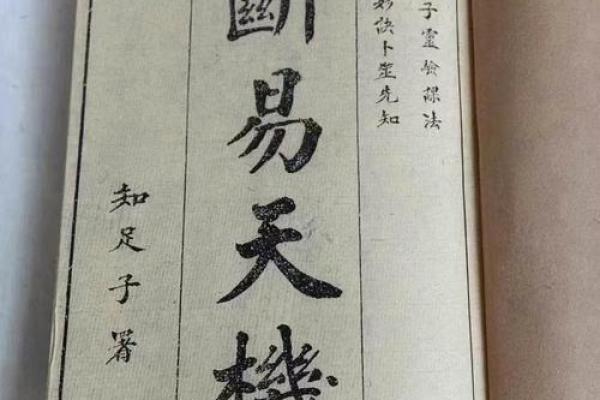 子靈驗課法
妙訣卜筮先知
斷易天機
知足子署